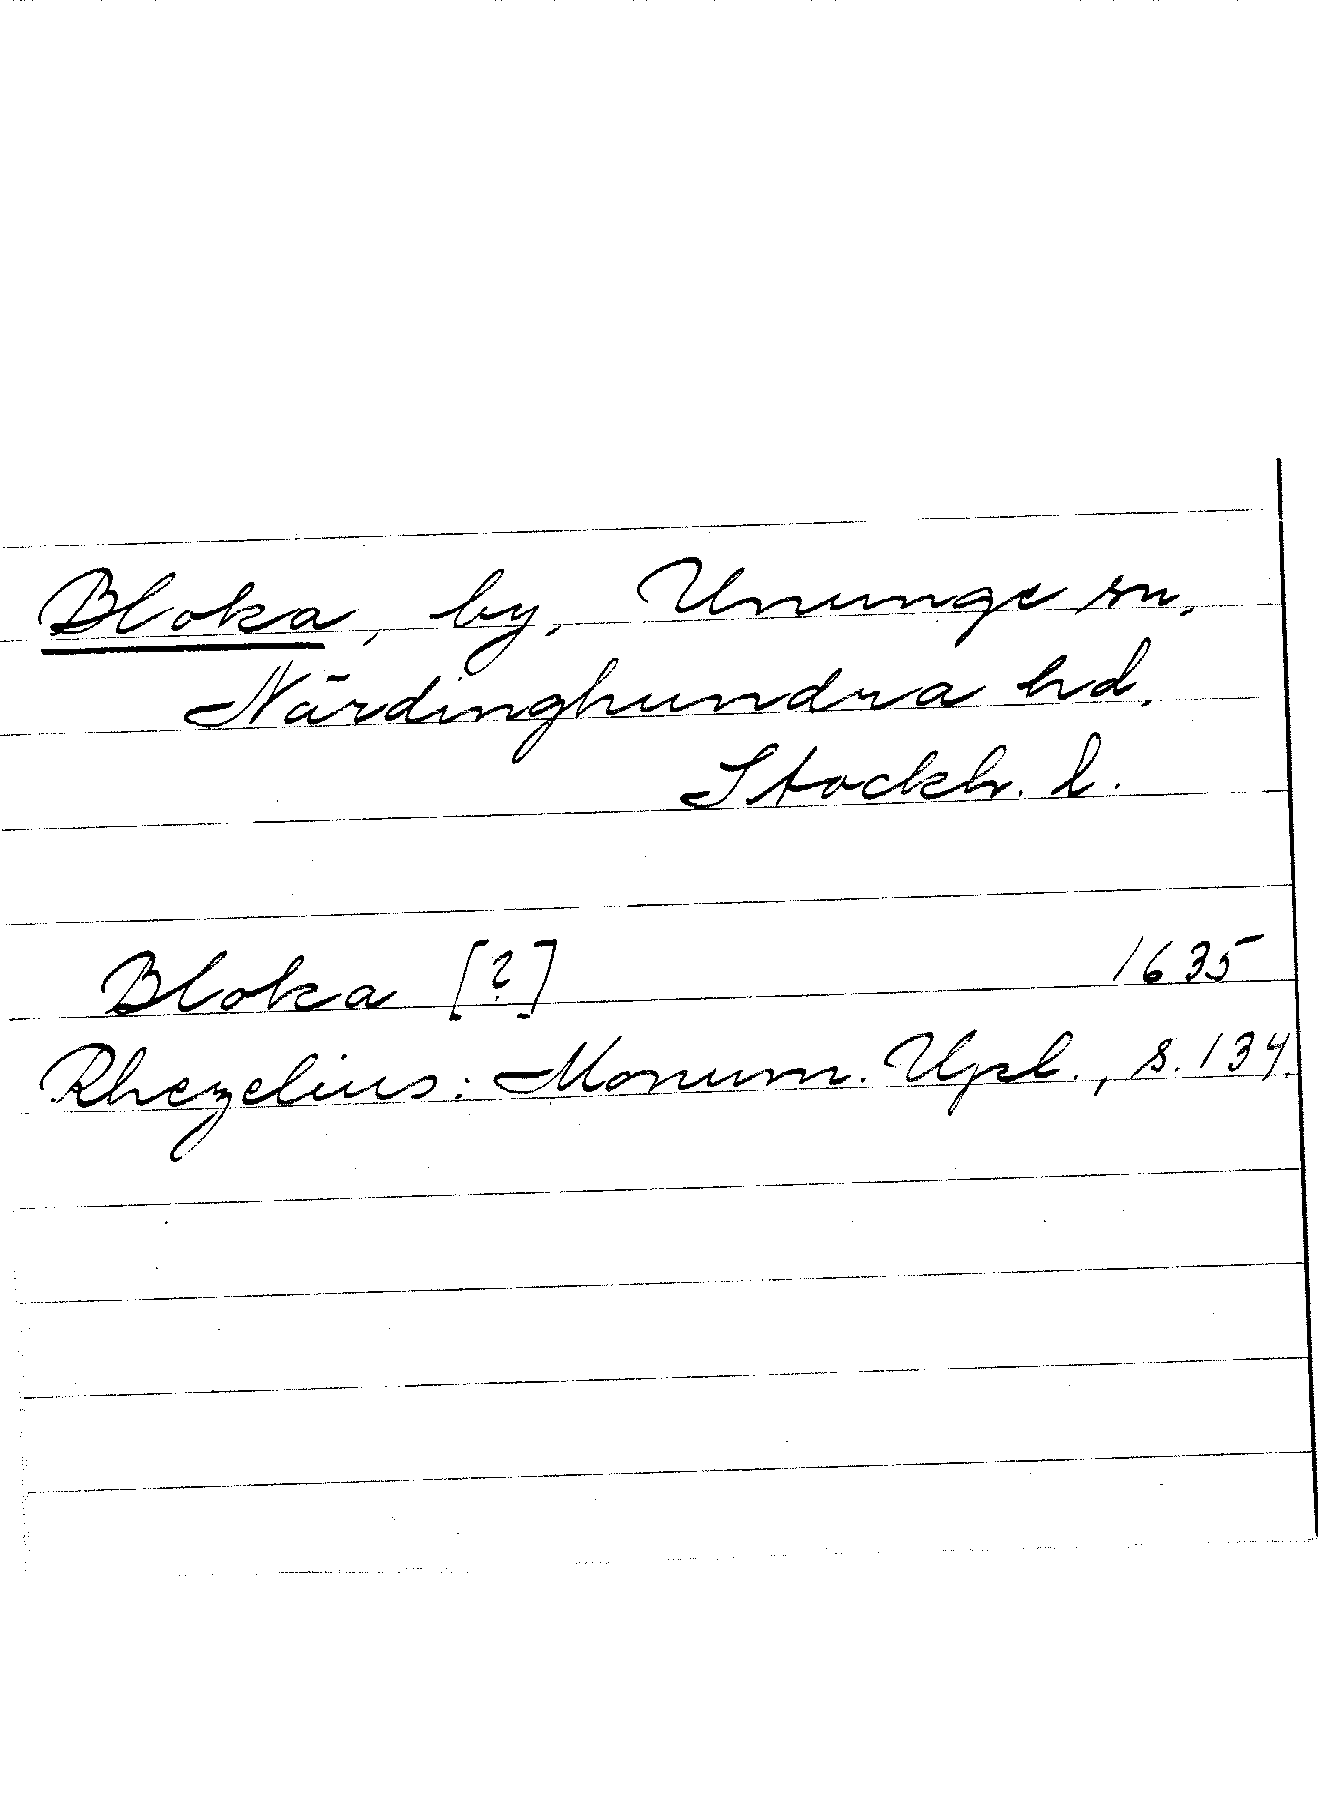 Bloka, by, Ununge sn,
Närdinghundra hd,
Stockh. l.
Bloka [?] 1635
Rhezelius: Monum. Upl., s. 134.